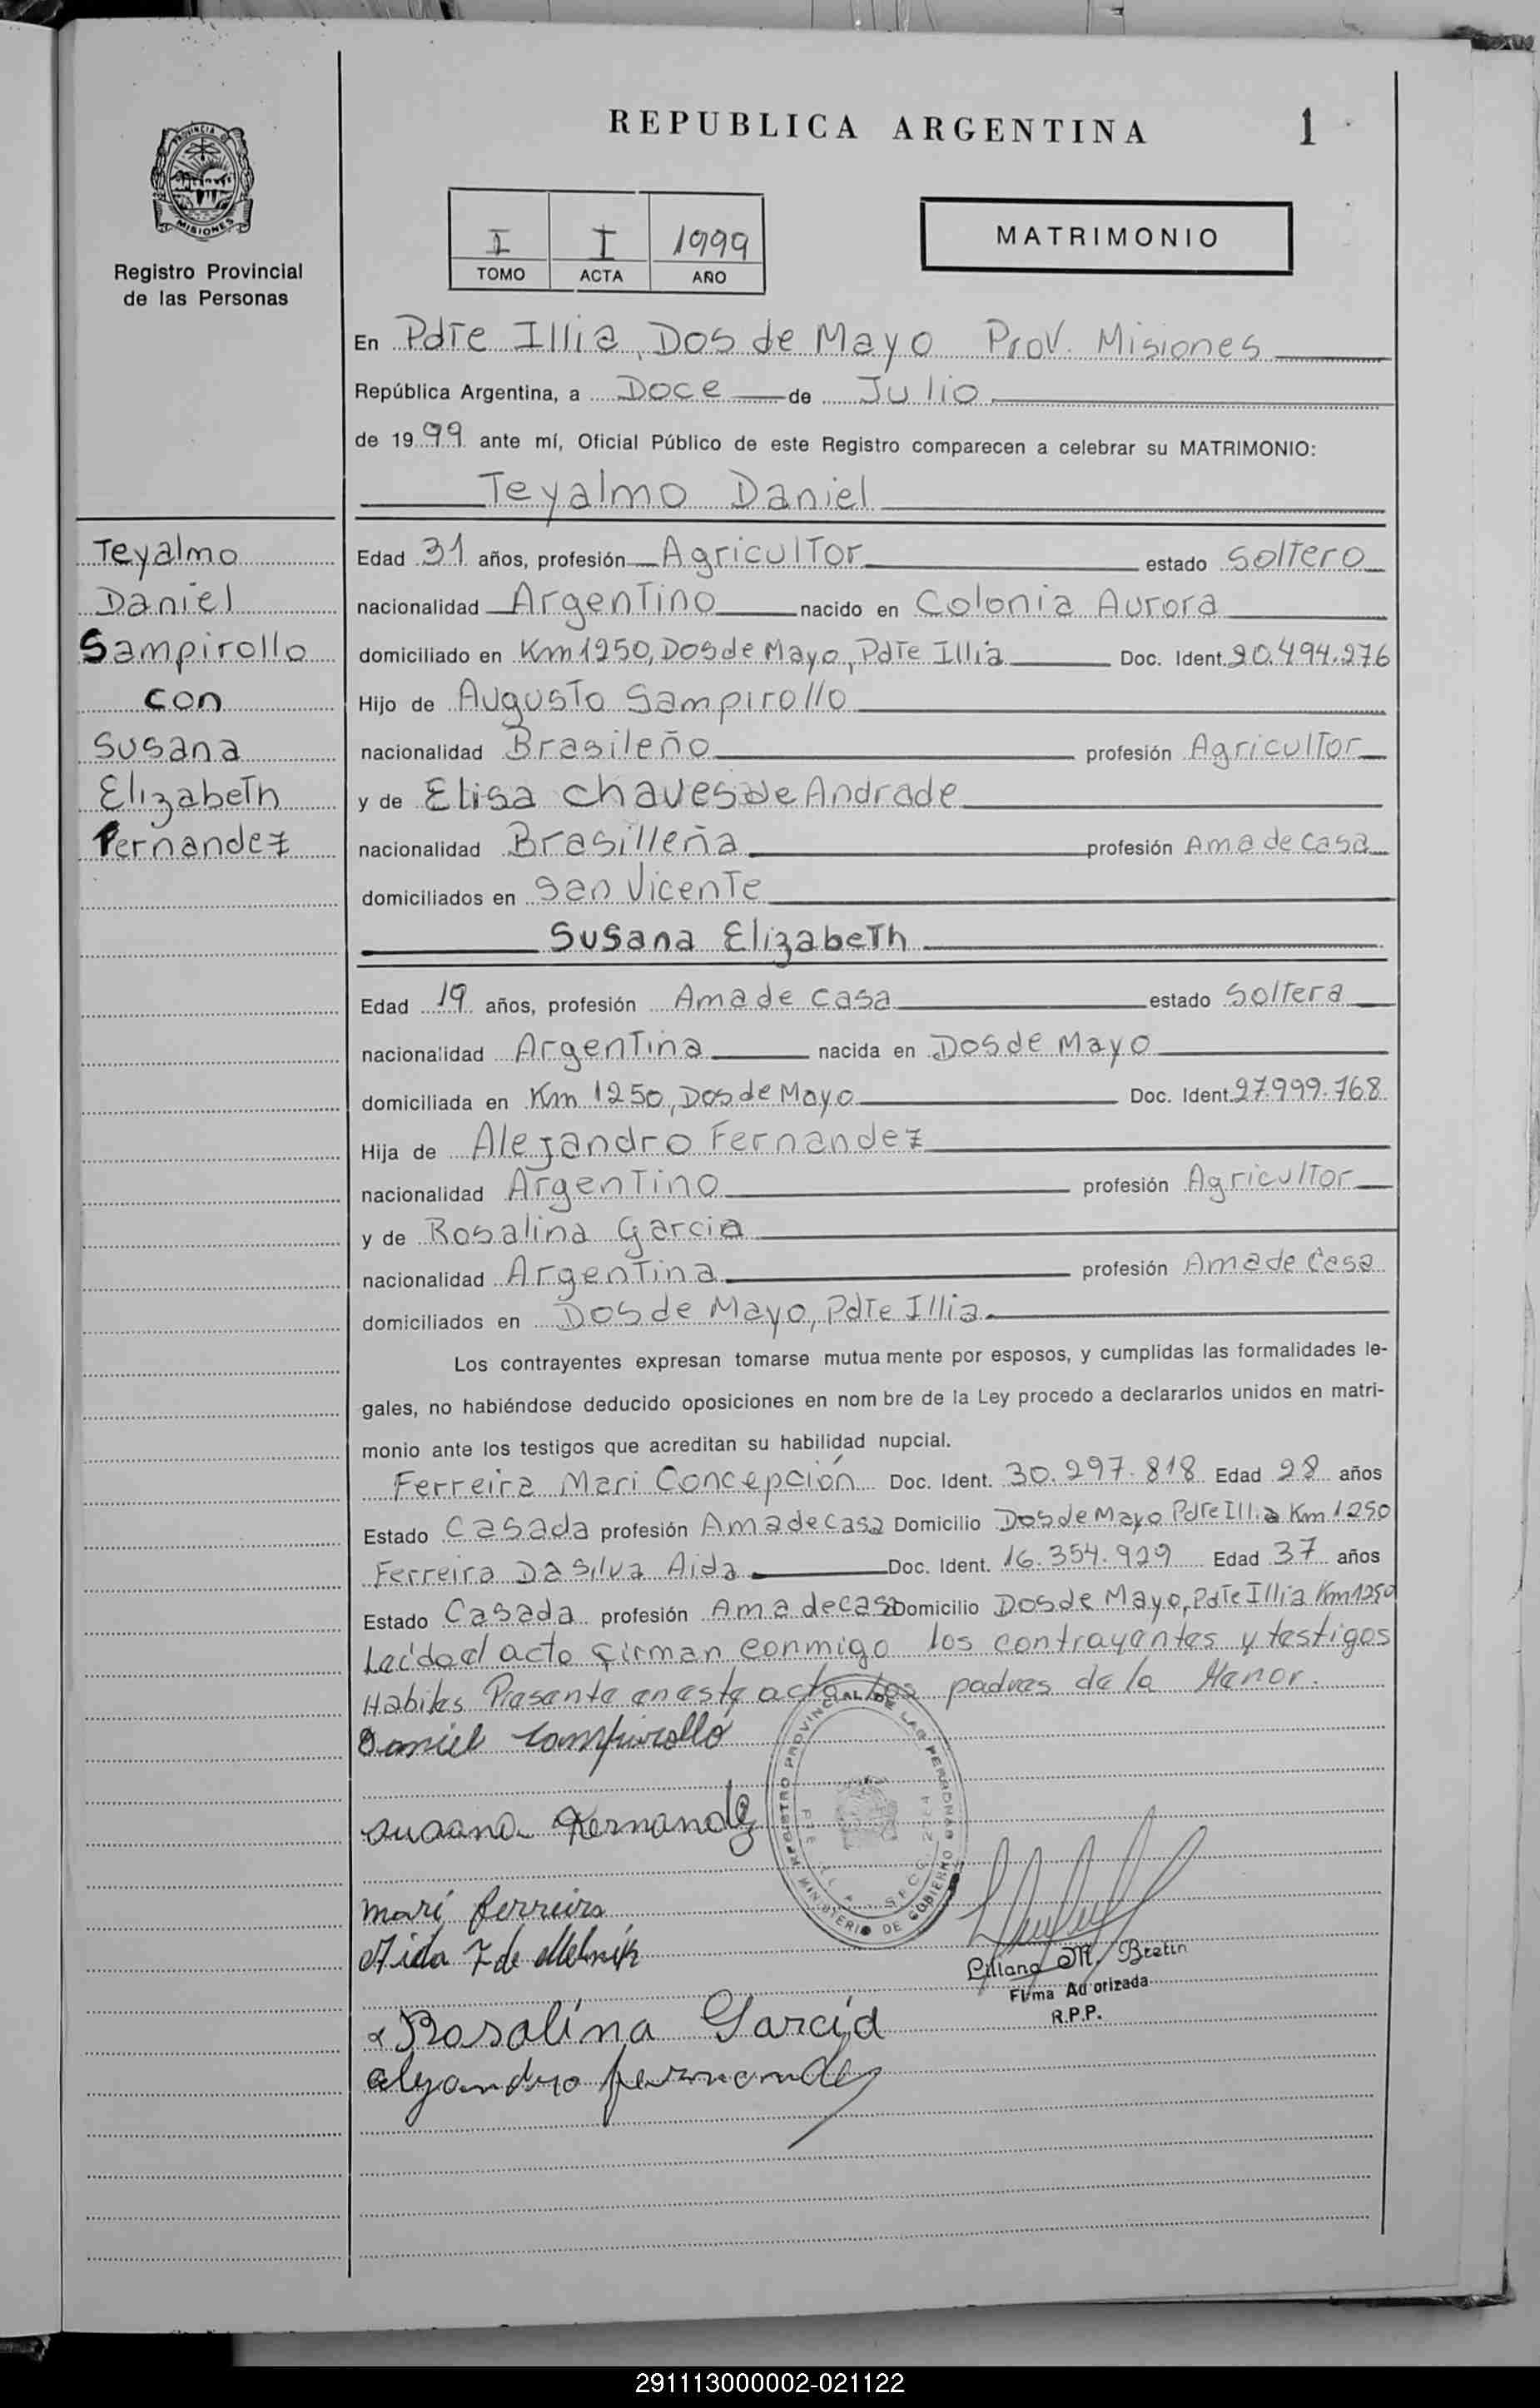 REPUBLICA ARGENTINA
1
PROVINCIA DE
MISIONES
Registro Provincial
de las Personas
I I 1999
TOMO ACTA AÑO
MATRIMONIO
En Pdte Illia, Dos de Mayo Prov. Misiones
República Argentina, a Doce de Julio
de 1999 ante mí, Oficial Público de este Registro comparecen a celebrar su MATRIMONIO:
Teyalmo Daniel
Teyalmo
Daniel
Sampirollo
con
Susana
Elizabeth
Fernandez
Edad 31 años, profesión Agricultor estado Soltero
nacionalidad Argentino nacido en Colonia Aurora
domiciliado en Km 1250, Dos de Mayo, Pdte Illia Doc. Ident. 20.494.276
Hijo de Augusto Sampirollo
nacionalidad Brasileño profesión Agricultor
y de Elisa Chaves de Andrade
nacionalidad Brasilleña profesión Ama de casa
domiciliados en San Vicente
Susana Elizabeth
Edad 19 años, profesión Ama de casa estado Soltera
nacionalidad Argentina nacida en Dos de Mayo
domiciliada en Km 1250, Dos de Mayo Doc. Ident. 27.999.768
Hija de Alejandro Fernandez
nacionalidad Argentino profesión Agricultor
y de Rosalina Garcia
nacionalidad Argentina profesión Ama de Casa
domiciliados en Dos de Mayo, Pdte Illia.
Los contrayentes expresan tomarse mutua mente por esposos, y cumplidas las formalidades le-
gales, no habiéndose deducido oposiciones en nom bre de la Ley procedo a declararlos unidos en matri-
monio ante los testigos que acreditan su habilidad nupcial.
Ferreira Mari Concepción Doc. Ident. 30.297.818 Edad 28 años
Estado Casada profesión Ama de casa Domicilio Dos de Mayo Pdte Illia Km 1250
Ferreira Da Silva Aida Doc. Ident. 16.354.929 Edad 37 años
Estado Casada profesión Ama de casa Domicilio Dos de Mayo, Pdte Illia Km 1250
Leido el acto firman conmigo los contrayentes y testigos
Habiles Presente en este acto los padres de la Menor.
Daniel Sampirollo
REGISTRO PROVINCIAL DE LAS PERSONAS
MINISTERIO DE GOBIERNO
Susana Fernandez
mari ferreira
Aida F de Melnik
Liliana M. Bretin
Firma Autorizada
R.P.P.
Rosalina Garcia
alejandro fernandez
291113000002-021122